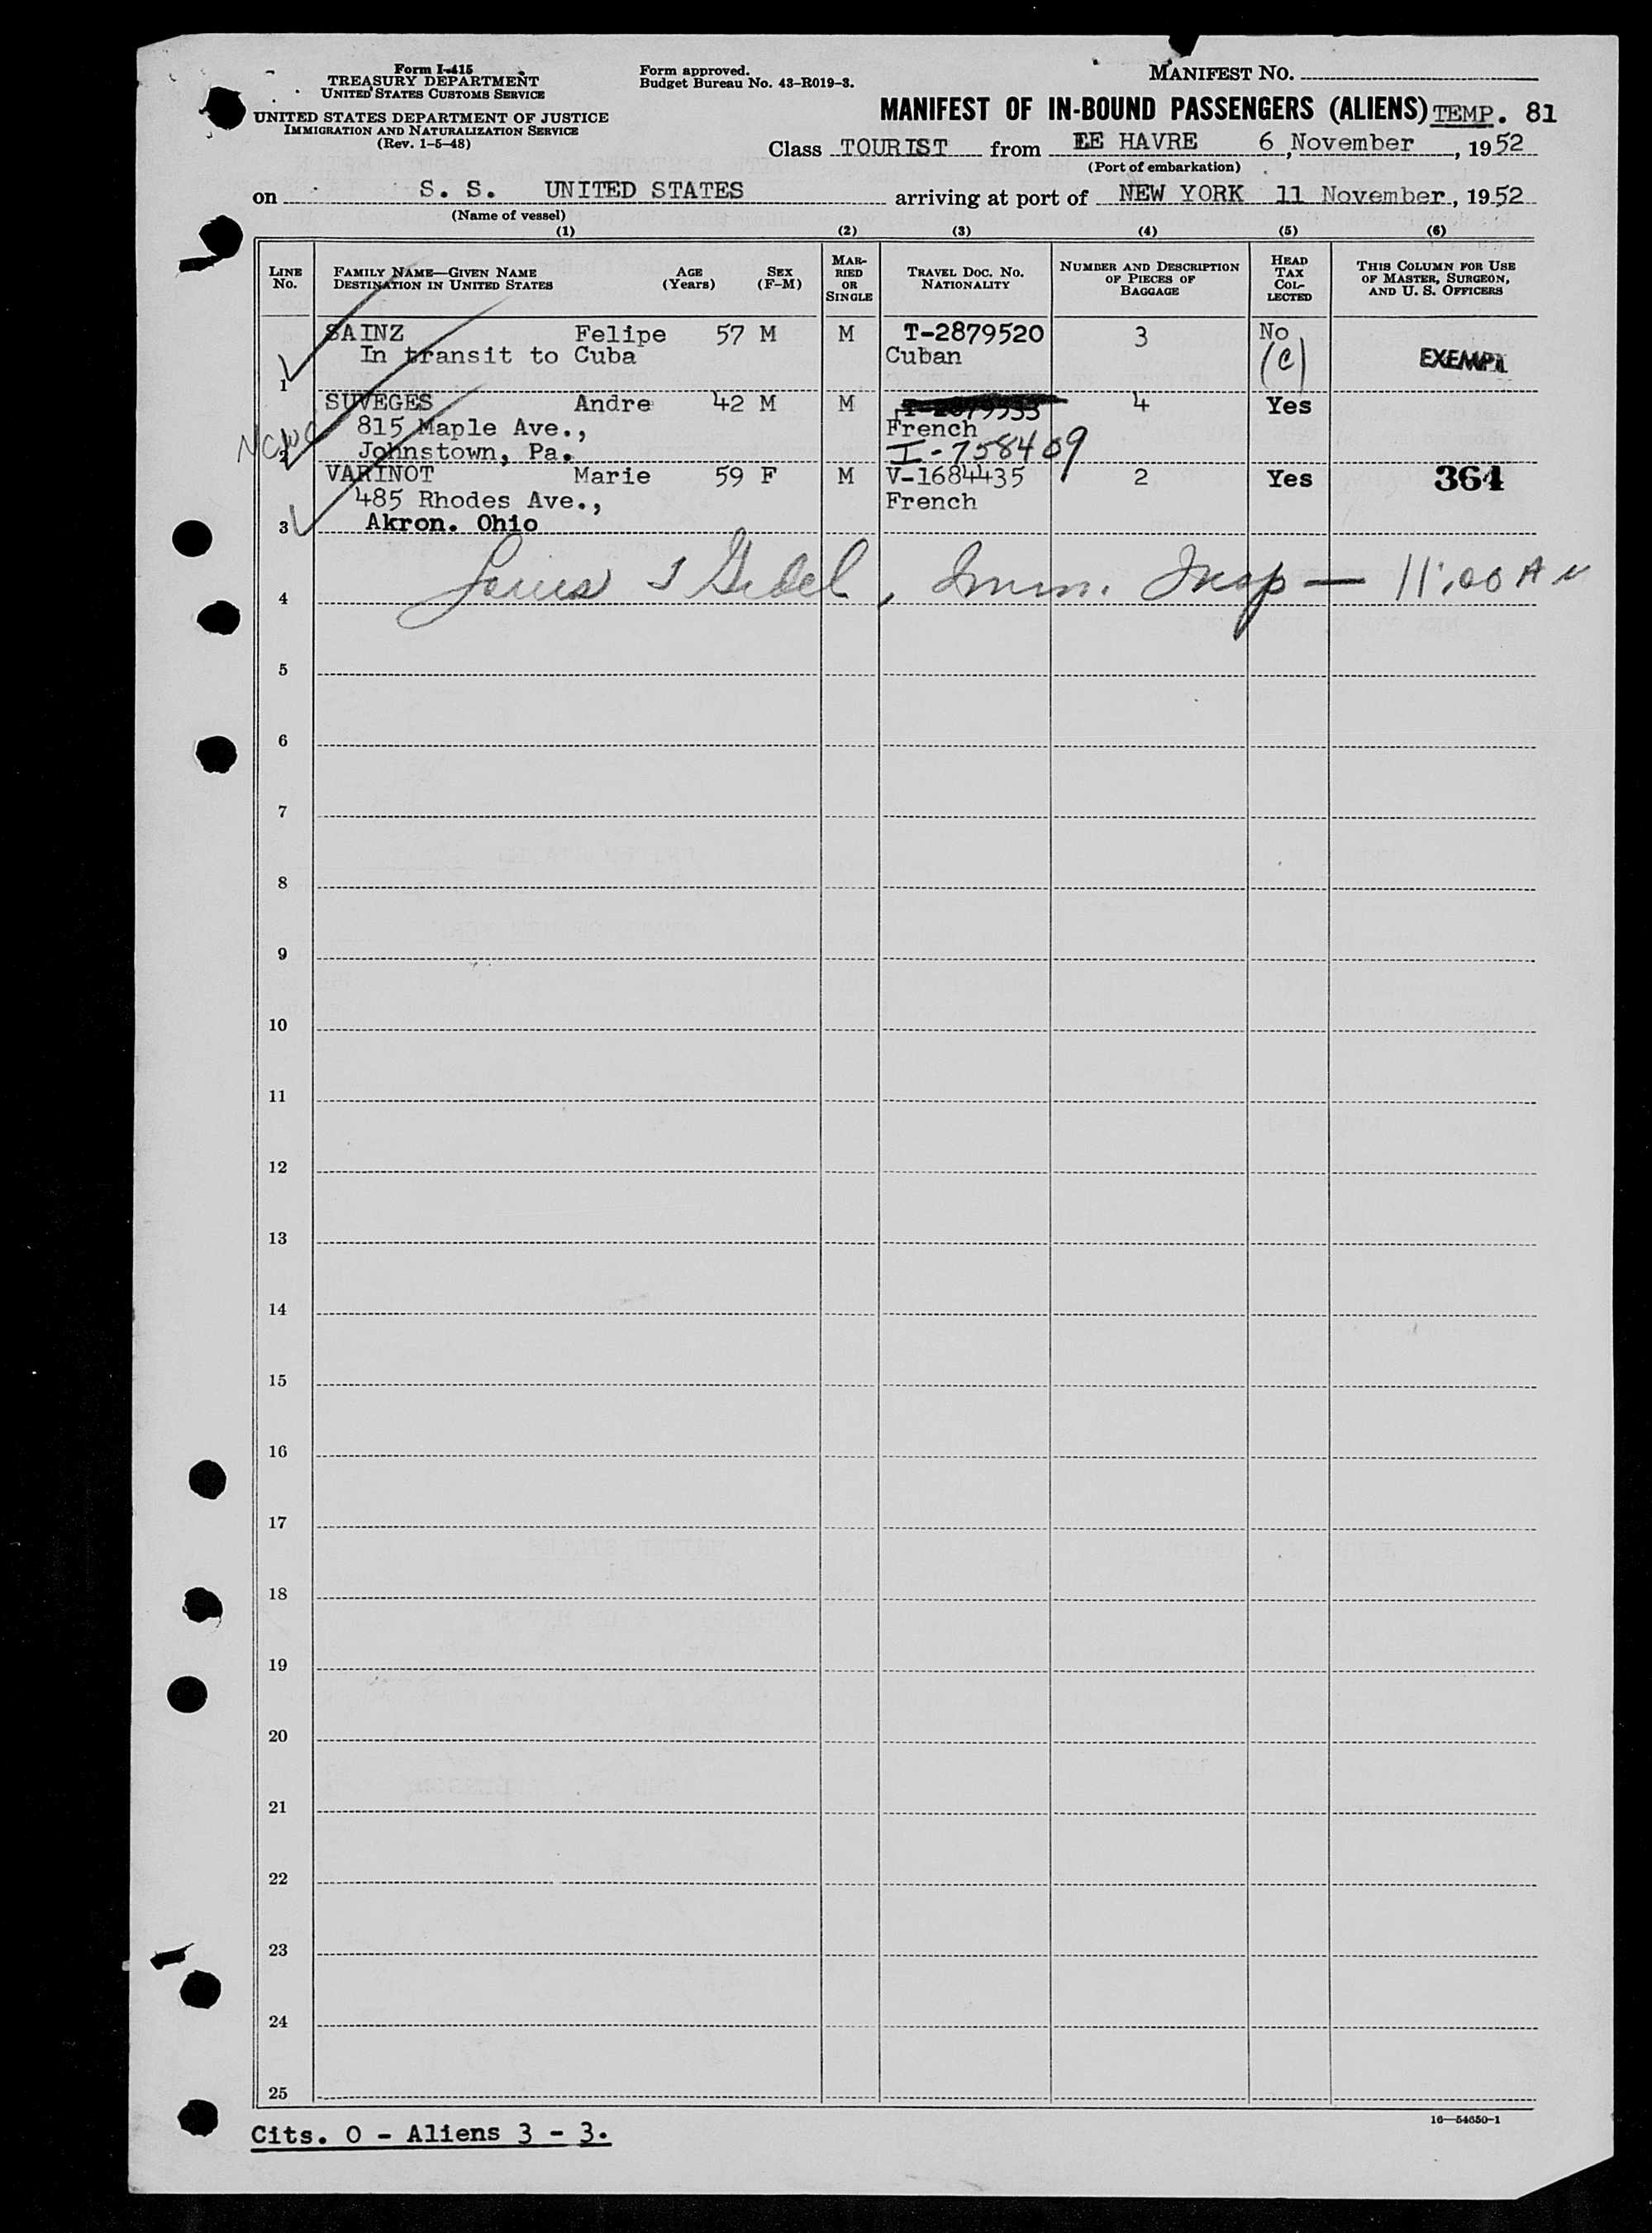 Form I-415
TREASURY DEPARTMENT
UNITED STATES CUSTOMS SERVICE
UNITED STATES DEPARTMENT OF JUSTICE
IMMIGRATION AND NATURALIZATION SERVICE
(Rev. 1-5-48)
Form approved.
Budget Bureau No. 43-R019-3.
MANIFEST NO.
MANIFEST OF IN-BOUND PASSENGERS (ALIENS) TEMP. 81
Class TOURIST from EE HAVRE 6 November, 1952
(Port of embarkation)
on S. S. UNITED STATES arriving at port of NEW YORK 11 November, 1952
(Name of vessel)
(1) (2) (3) (4) (5) (6)
LINE NO.
FAMILY NAME—GIVEN NAME DESTINATION IN UNITED STATES
AGE (Years)
SEX (F-M)
MARRIED OR SINGLE
TRAVEL DOC. NO. NATIONALITY
NUMBER AND DESCRIPTION OF PIECES OF BAGGAGE
HEAD TAX COLLECTED
THIS COLUMN FOR USE OF MASTER, SURGEON, AND U. S. OFFICERS
SAINZ Felipe 57 M M T-2879520 3 No
In transit to Cuba Cuban (C) EXEMPT
1
SUVEGES Andre 42 M M T-2879533 4 Yes
815 Maple Ave., French
2 Johnstown, Pa. I-758409
VARINOT Marie 59 F M V-1684435 2 Yes 364
485 Rhodes Ave., French
3 Akron. Ohio
4 Louis , Imm. Insp — 11:00 AM
5
6
7
8
9
10
11
12
13
14
15
16
17
18
19
20
21
22
23
24
25
16—54650-1
Cits. 0 - Aliens 3 - 3.